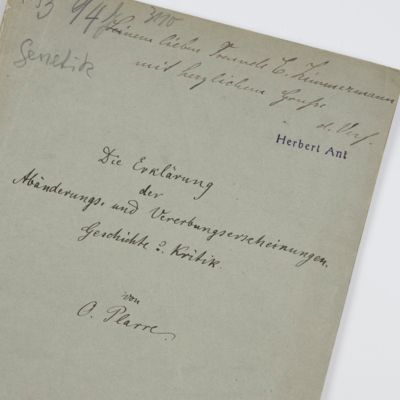 3 94/3110
Seinem lieben Freunde E. Zimmermann
Genetik
mit herzlichem Gruße
d. Verf.
Herbert Ant
Die Erklärung
der
Abänderungs- und Vererbungserscheinungen.
Geschichte & Kritik.
von
O. Plarre.